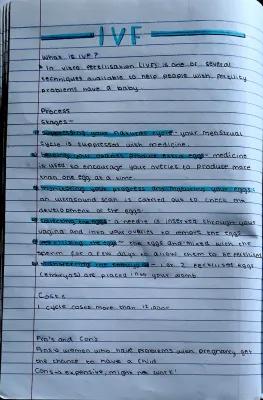 IVF
What is IVF?
In vitro fertilisation (IVF) is one of several
techniques available to help people with fertility
problems have a baby.
Process
Stages-
Suppressing your natural cycle - your menstrual
cycle is suppressed with medicine.
Helping your ovaries produce extra eggs - medicine
is used to encourage your ovaries to produce more
than one egg at a time.
Monitoring your progress and maturing your eggs -
an ultrasound scan is carried out to check the
development of the eggs.
Collecting the eggs - a needle is inserted through your
vagina and into your ovaries to remove the eggs
Fertilising the eggs - the eggs are mixed with the
sperm for a few days to allow them to be fertilised
Transferring the embryo - 1 or 2 fertilised eggs
(embryos) are placed into your womb
Costs
1 cycle costs more than
Pro's and Cons
Pros - women who have problems with pregnancy get
the chance to have a child
Cons - expensive, might not work!